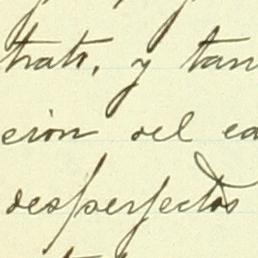 trato, y tan
cion del ed
desperfectos